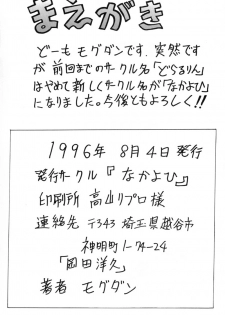 まえがき
どーもモグダンです。突然です
が前回までのサークル名「どらるりん」
はやめて新しくサークル名が「なかよひ」
になりました。今後ともよろしく!!
1996年 8月4日発行
発行サークル『なかよひ』
印刷所 高山リプロ様
連絡先 〒343 埼玉県越谷市
神明町1-74-24
「岡田洋久」
著者 モグダン